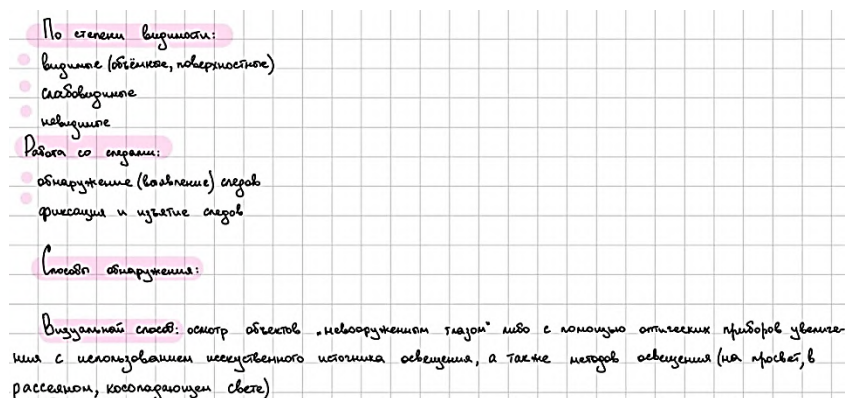 По степени видимости:
видимые (объёмные, поверхностные)
слабовидимые
невидимые
Работа со следами:
обнаружение (выявление) следов
фиксация и изъятие следов
Способы обнаружения:
Визуальный способ: осмотр объектов „невооруженным глазом" либо с помощью оптических приборов увеличе-
ния с использованием искуственного источника освещения, а также методов освещения (на просвет, в
рассеяном, косопадающем свете)